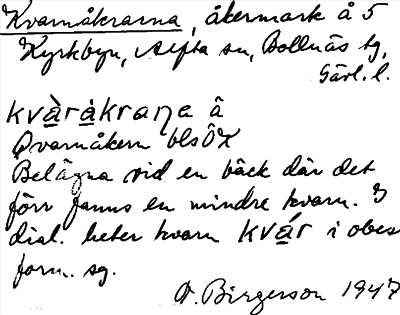 Kvarnåkrarna, åkermark å 5
Kyrkbyn, Alfta sn, Bollnäs tg,
Gävl. l.
kvàrákraɳa â
Qvarnåkern blsÖK
Belägna vid en bäck där det
förr fanns en mindre kvarn. I
dial. heter kvarn kvár i obest
form. sg.
Birgerson 1947